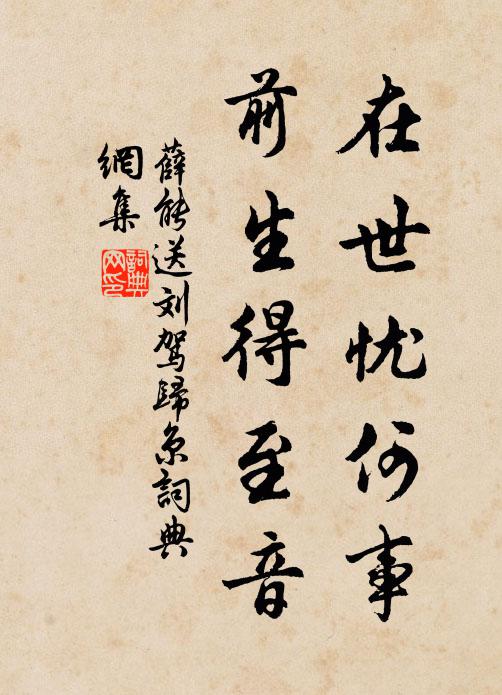 在世忧何事
前生得至音
薛能送刘驾歸京詞典
網集
詞典
网印